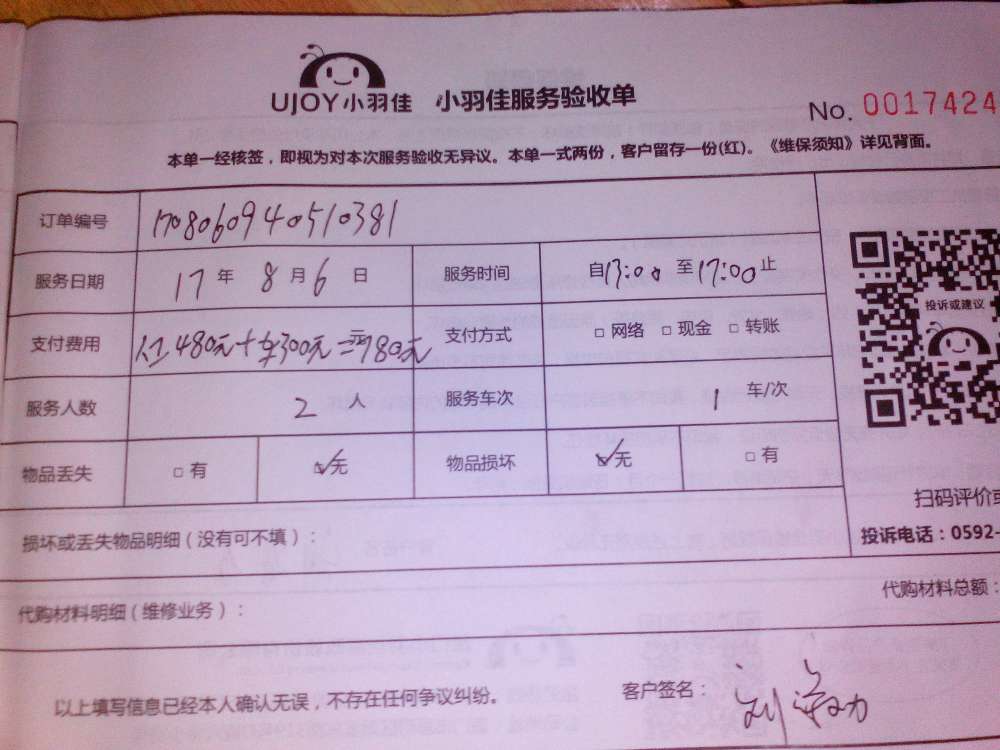 UJOY小羽佳 小羽佳服务验收单
No. 0017424
本单一经核签，即视为对本次服务验收无异议。本单一式两份，客户留存一份(红)。《维保须知》详见背面。
订单编号 1708060940510381
服务日期 17年8月6日 服务时间 自13:00至17:00止
支付费用 人工480元+车300元=780元 支付方式 □网络 □现金 □转账
服务人数 2人 服务车次 1 车/次
物品丢失 □有 ☑无 物品损坏 ☑无 □有
投诉或建议
扫码评价或
投诉电话：0592-
损坏或丢失物品明细（没有可不填）：
代购材料明细（维修业务）： 代购材料总额：
以上填写信息已经本人确认无误，不存在任何争议纠纷。 客户签名： 刘